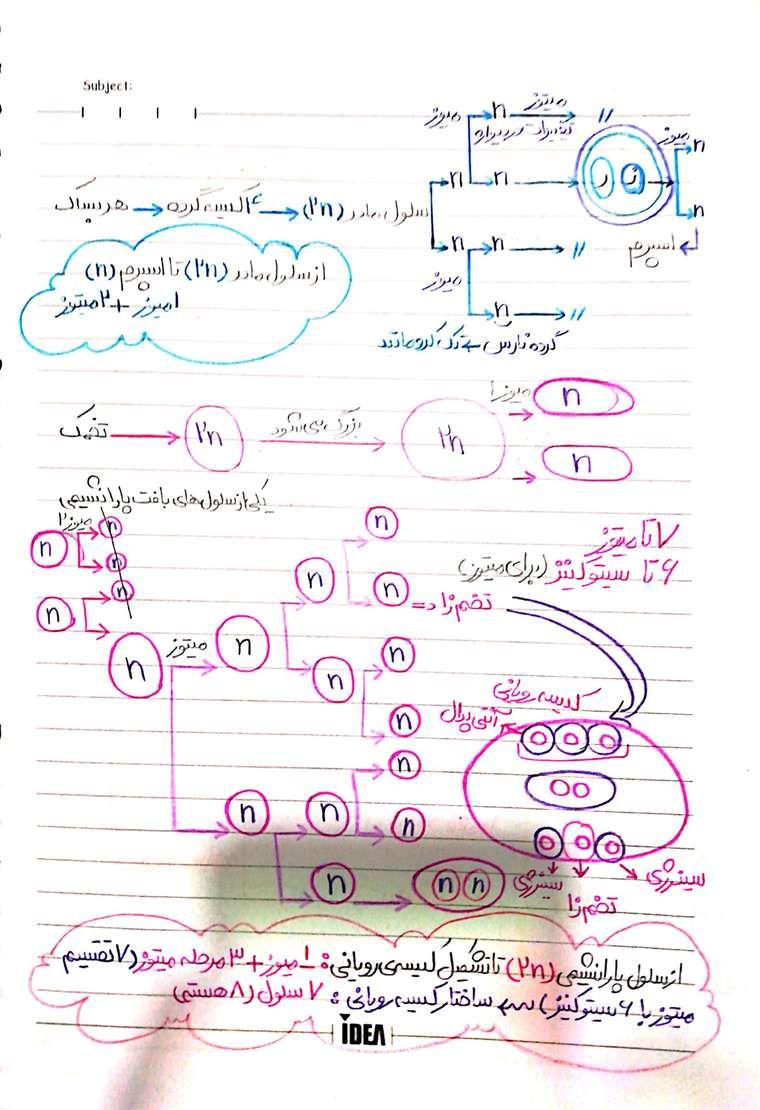 Subject:
میوز n میتوز //
تغییرات در دیواره
n n ز ر میوز n
n
هر بساک → ۴ کیسه گرده → سلول مادر (۲n) n
n n //
اسپرم
میوز
n //
گرده نارس → تک کروماتید
از سلول مادر (۲n) تا اسپرم (n)
۱ میوز + ۲ میتوز
تخمک → ۲n بزرگ می‌شود ۲n میوز۱ n
n
یکی از سلول‌های بافت پارانشیمی
میوز۲
n n n
n n
n میتوز n n n
n = تخم‌زا
n n
n
۷ تا میتوز
۶ تا سیتوکینز (برای میتوز)
کیسه رویانی
آنتی پدال
n n n
n
n n n
سینرژی تخم‌زا سینرژی
از سلول پارانشیمی (۲n) تا تشکیل کیسه‌ی رویانی: ۱ میوز + ۳ مرحله میتوز (۷ تقسیم
میتوز با ۶ سیتوکینز) → ساختار کیسه رویانی: ۷ سلول (۸ هسته)
IDEA